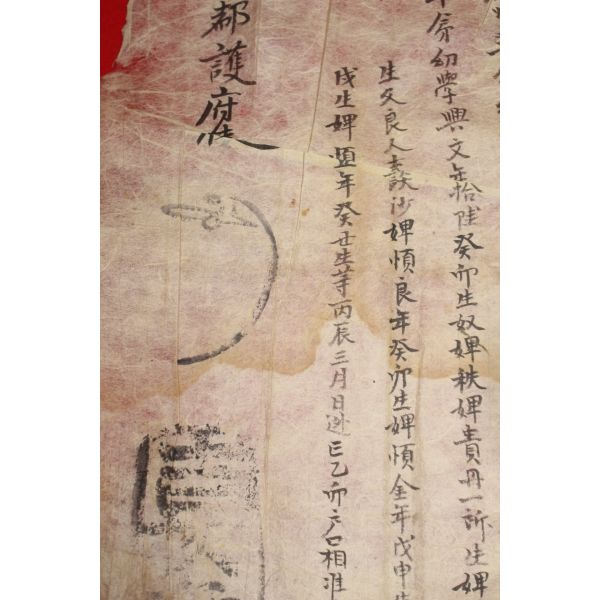 年矣幼學興文年拾陸癸卯生奴婢秩婢責丹一所生婢
生父良人談沙婢順良年癸卯生婢順金年戊申生
戌生婢 年癸丑生等丙辰三月日逃亡乙卯戶口相准
都護府